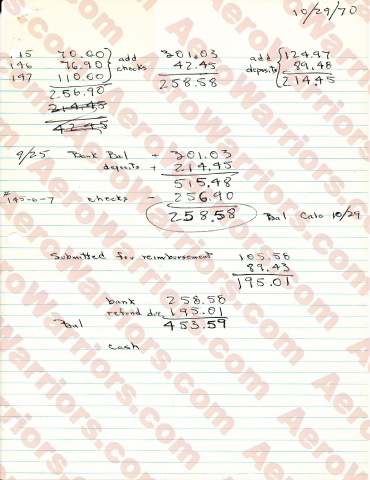 10/29/70
.15 70.00 add 301.03 add 124.97
146 76.90 checks 42.45 deposits 89.48
147 110.00 258.58 214.45
256.90
214.45
42.45
9/25 Bank Bal + 301.03
deposits + 214.45
515.48
#145-6-7 checks - 256.90
258.58 Bal Calc 10/29
Submitted for reimbursement 105.58
89.43
195.01
bank 258.58
refund due 195.01
Bal 453.59
cash
AeroWarriors.com